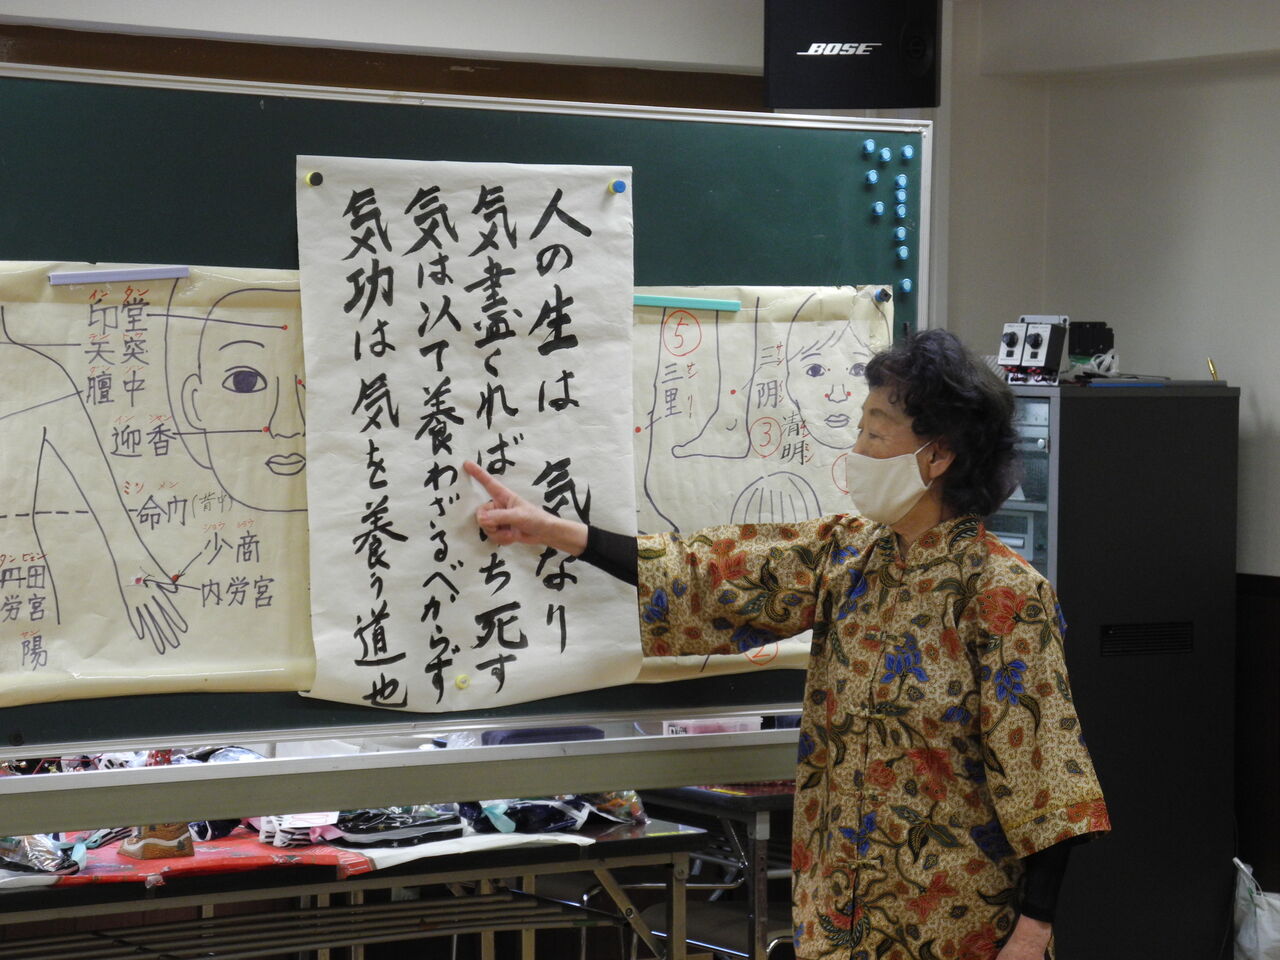 BOSE
人の生は 気なり
気盡くればち死す
気は以て養わざるべからず
気功は気を養う道也
インタン
印堂
天突
膻中
イン
迎香
ミンメン
命门(背中)
ショウショウ
少商
内労宮
丹田
労宮
陽
⑤
サンリ
三里
三阴
③
清明